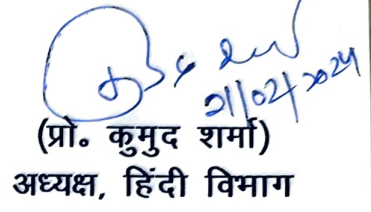 21/02/2024
(प्रो० कुमुद शर्मा)
अध्यक्ष, हिंदी विभाग